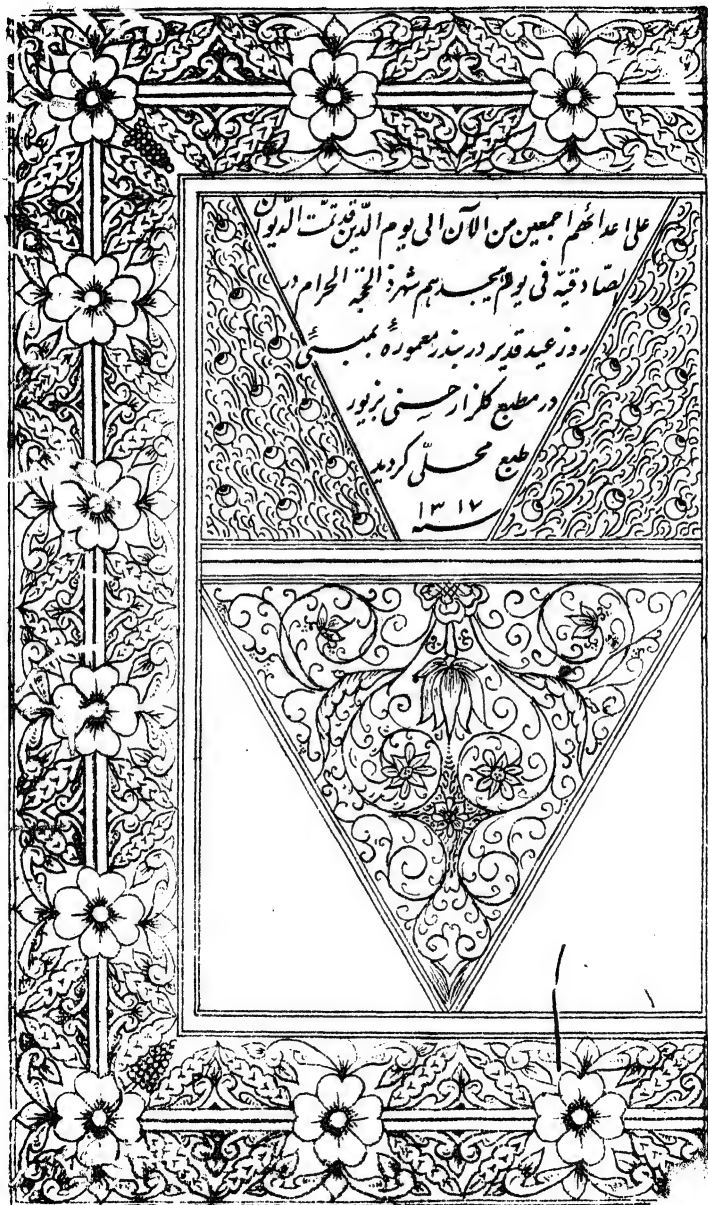 علی اعدائهم اجمعین من الآن الی یوم الدّین قد تمّت الدّیوان
الصّادقیّه فی یوم هیجدهم شهر ذ الحجّة الحرام در
روز عید قدیر در بندر معمورهٔ بمبئی
در مطبع کلزار حسنی بزیور
طبع محلّی کردید
سنه ۱۳۱۷